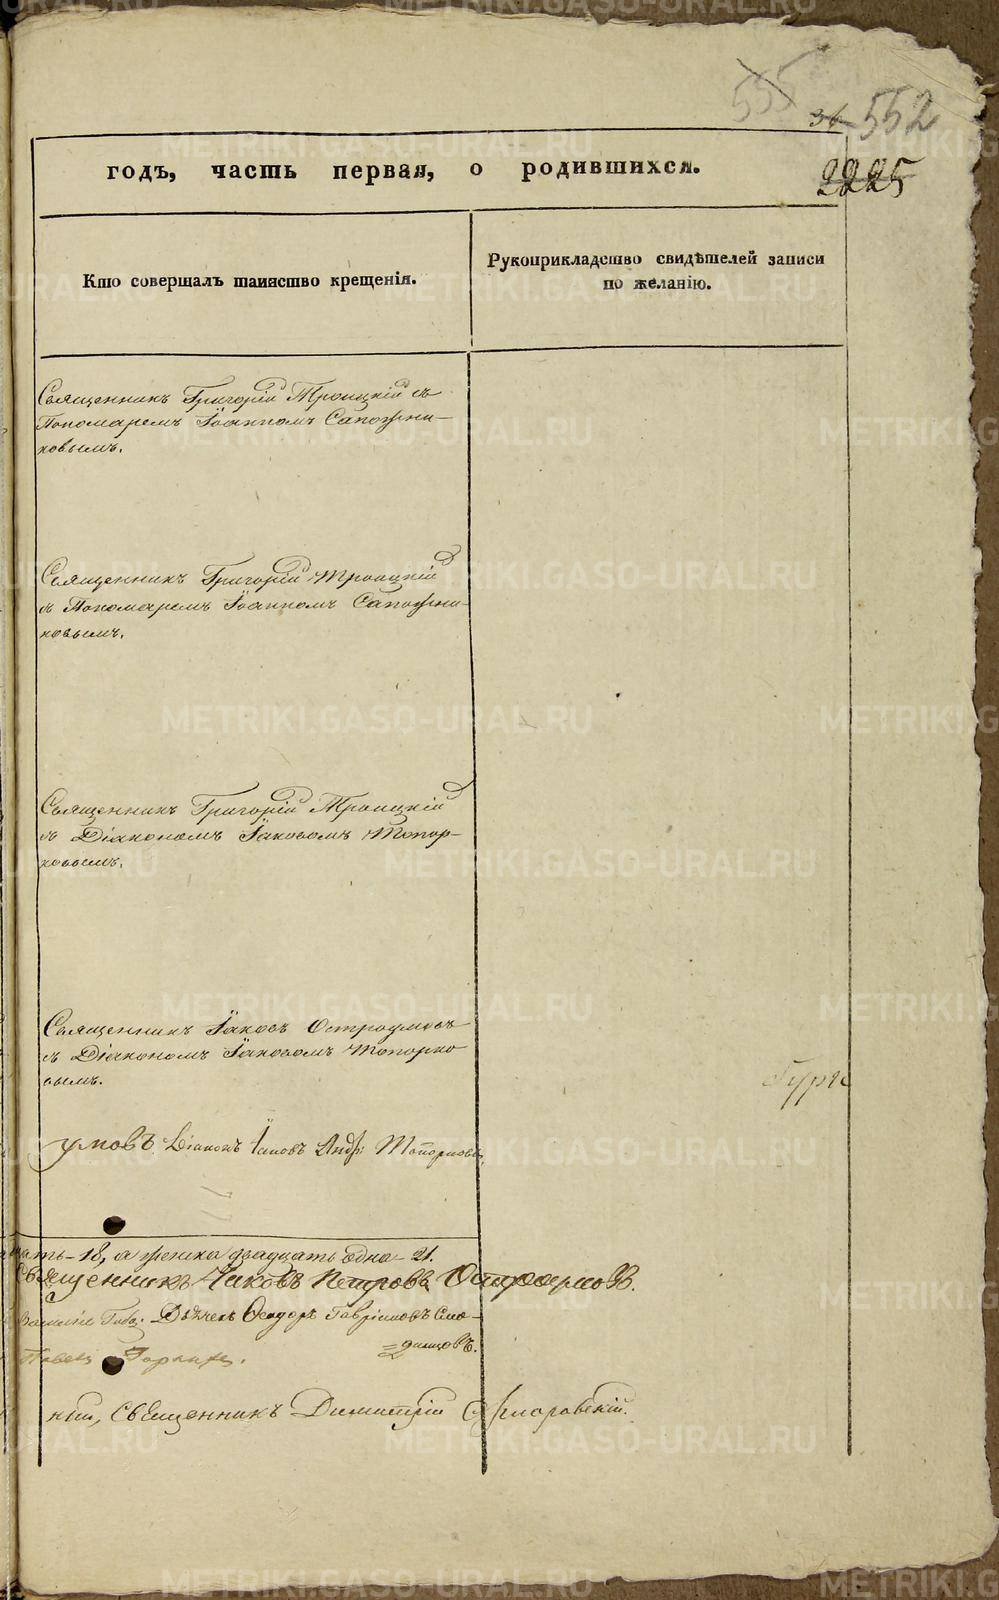 555
36 552
2225
годъ, часть первая, о родившихся.
Кто совершалъ таинство крещенія.
Рукоприкладство свидѣтелей записи
по желанію.
Священникъ Григорій Троицкій съ
Пономаремъ Іоанномъ Сапожни-
ковымъ.
Священникъ Григорій Троицкій
съ Пономаремъ Іоанномъ Сапожни-
ковымъ.
Священникъ Григорій Троицкій
съ Діакономъ Іаковомъ Топор-
ковымъ.
Священникъ Іаковъ Остроумовъ
съ Діакономъ Іаковомъ Топорко
вымъ.
Гурі
умовъ Діаконъ Іаковъ Андр: Топорковъ
18, а женска двадцать одна 21.
Священникъ Іаковъ Петровъ Остроумовъ.
Дьячекъ Ѳеодоръ Гавріиловъ Смо-
=
кій, Священникъ Димитрій
METRIKI.GASO-URAL.RU